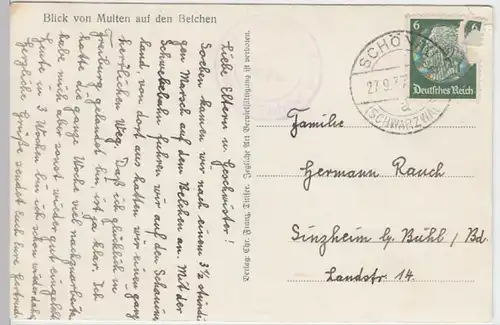 Blick von Multen auf den Belchen
Liebe Eltern u. Geschwister!
Soeben kamen wir nach einem 3½ stündi-
gen Marsch auf dem Belchen an. Mit der
Schwebebahn fuhren wir auf den Schauins-
land, von dort aus hatten wir einen ganz
herrlichen Weg. Daß ich glücklich in
Freiburg gelandet bin, ist ja klar. Ich
hatte die ganze Woche viel
habe mich aber sonst wieder gut eingelebt.
Heute in 3 Wochen bin ich schon wieder dabei.
Herzliche Grüße sendet Euch Eure Gertrud.
Vervielfältigung ist verboten.
6
Deutsches Reich
SCHÖ
27.9.37
a
(SCHWARZW
Familie
Hermann Rauch
Singheim b/ Bühl / Bd.
Landstr 14.